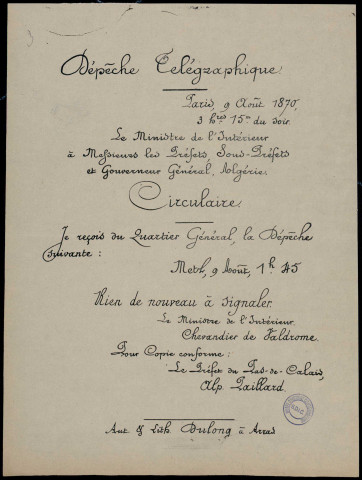 Dépêche Télégraphique.
Paris, 9 Août 1870,
3 hres 15m du soir.
Le Ministre de l'Intérieur
à Messieurs les Préfets, Sous-Préfets
et Gouverneur Général, Algérie.
Circulaire.
Je reçois du Quartier Général, la Dépêche
suivante :
Metz, 9 Août, 1h 45
Rien de nouveau à signaler.
Le Ministre de l'Intérieur.
Chevandier de Valdrome.
Pour Copie conforme :
Le Préfet du Pas-de-Calais,
Alp. Paillard.
Aut. & Lith. Dulong à Arras